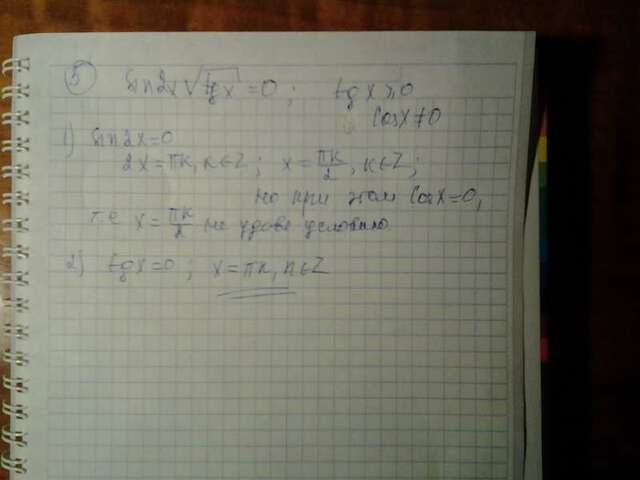 5) sin2x√tgx = 0 ; tgx ≥ 0
cosx ≠ 0
1) sin2x=0
2x = πk, k∈Z ; x = πk/2, k∈Z ;
но при этом cosx=0,
т.е x = πk/2 не удовл условию
2) tgx=0 ; x = πn, n∈Z